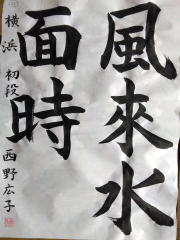 風來水
面時
横浜 初段 西野広子